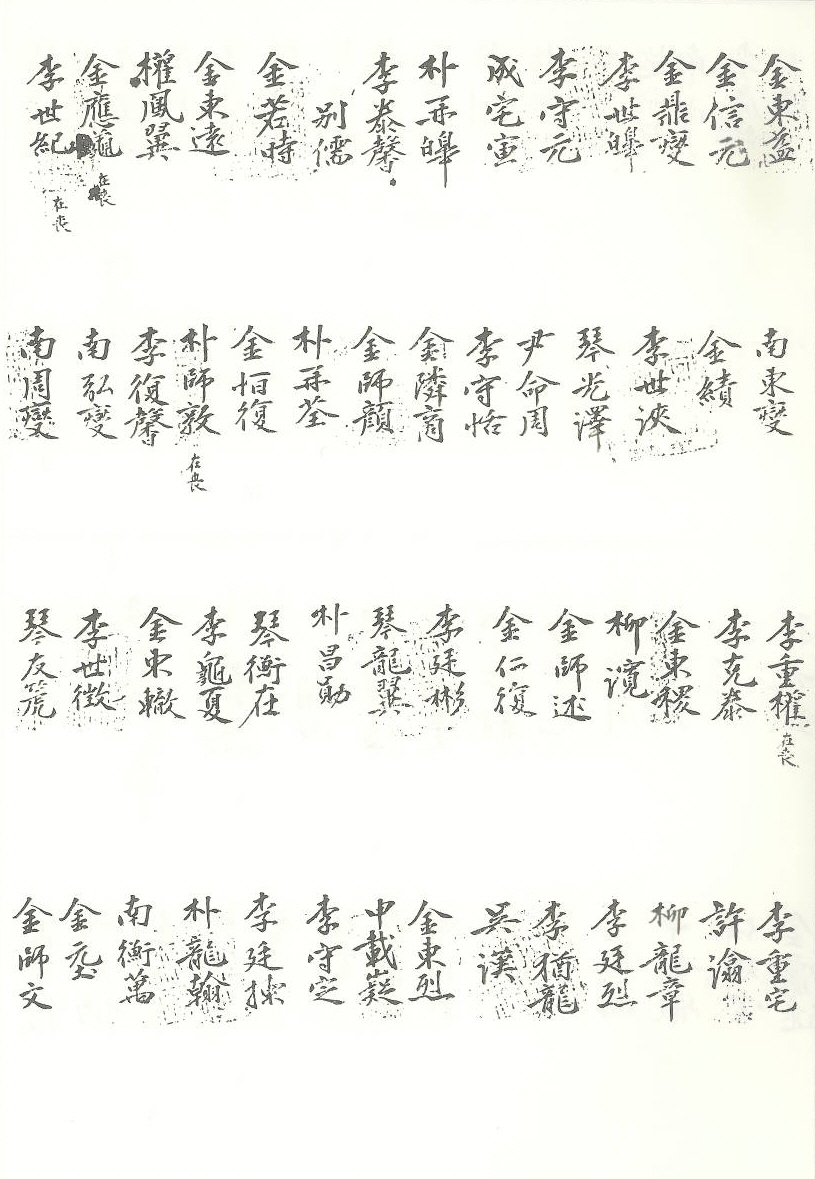 金東益
金信元
金鼎燮
李世皥
李守元
成宅寅
朴再皥
李泰馨
別儒
金若時
金東遠
權鳳翼
金應 在喪
李世紀 在喪
南東燮
金績
李世浹
琴光澤
尹命周
李守恬
金隣商
金師顔
朴再荃
金恒復
朴師敦 在喪
李復馨
南弘燮
南周燮
李重權 在喪
李克泰
金東稷
柳濱
金師述
金仁復
李廷彬
琴龍翼
朴昌勛
琴衡在
李龜夏
金東轍
李世徵
琴友篪
李重宅
許瀹
柳龍章
李廷烈
李猶龍
吳漢
金東烈
申載嶷
李守定
李廷揀
朴龍翰
南衡萬
金元
金師文